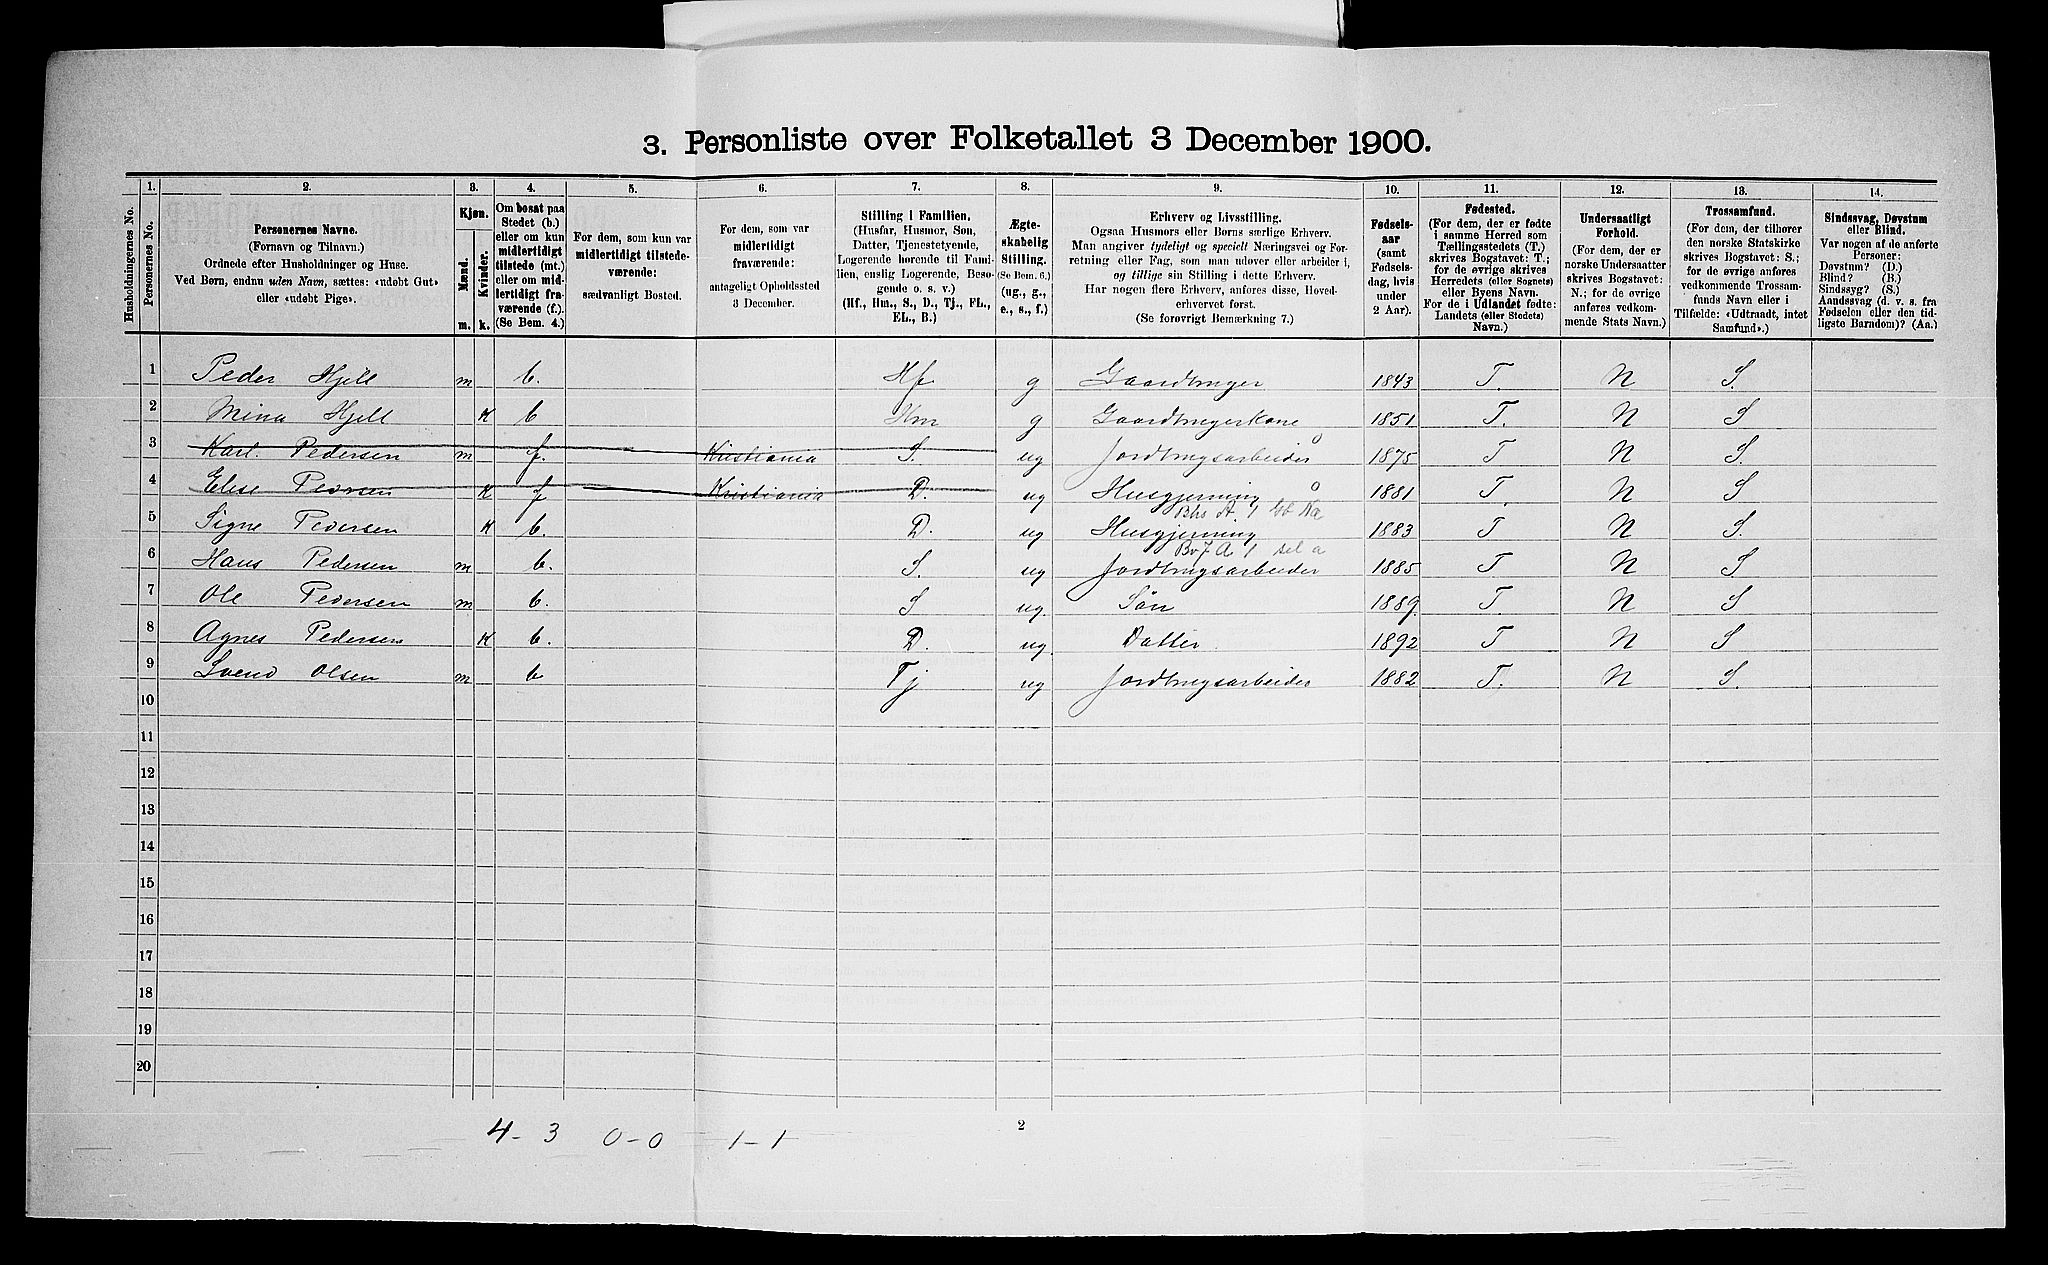 3. Personliste over Folketallet 3 December 1900.
Husholdningernes No.
1. Personernes No.
2. Personernes Navne. (Fornavn og Tilnavn.) Ordnede efter Husholdninger og Huse. Ved Børn, endnu uden Navn, sættes: «udøbt Gut» eller «udøbt Pige».
3. Kjøn. Mænd. m. Kvinder. k.
4. Om bosat paa Stedet (b.) eller om kun midlertidigt tilstede (mt.) eller om midlertidigt fraværende (f.). (Se Bem. 4.)
5. For dem, som kun var midlertidigt tilstedeværende: sædvanligt Bosted.
6. For dem, som var midlertidigt fraværende: antageligt Opholdssted 3 December.
7. Stilling i Familien. (Husfar, Husmor, Søn, Datter, Tjenestetyende, Logerende hørende til Familien, enslig Logerende, Besøgende o. s. v.) (Hf., Hm., S., D., Tj., FL., EL., B.)
8. Ægteskabelig Stilling. (Se Bem. 6.) (ug., g., e., s., f.)
9. Erhverv og Livsstilling. Ogsaa Husmors eller Børns særlige Erhverv. Man angiver tydeligt og specielt Næringsvei og Forretning eller Fag, som man udover eller arbeider i, og tillige sin Stilling i dette Erhverv. Har nogen flere Erhverv, anføres disse, Hovederhvervet først. (Se forøvrigt Bemærkning 7.)
10. Fødselsaar (samt Fødselsdag, hvis under 2 Aar).
11. Fødested. (For dem, der er fødte i samme Herred som Tællingsstedets (T.) skrives Bogstavet: T.; for de øvrige skrives Herredets (eller Sognets) eller Byens Navn. For de i Udlandet fødte: Landets (eller Stedets) Navn.)
12. Undersaatligt Forhold. (For dem, der er norske Undersaatter skrives Bogstavet: N.; for de øvrige anføres vedkommende Stats Navn.)
13. Trossamfund. (For dem, der tilhører den norske Statskirke skrives Bogstavet: S.; for de øvrige anføres vedkommende Trossamfunds Navn eller i Tilfælde: «Udtraadt, intet Samfund».)
14. Sindssvag, Døvstum eller Blind. Var nogen af de anførte Personer: Døvstum? (D.) Blind? (B.) Sindssyg? (S.) Aandssvag (d. v. s. fra Fødselen eller den tidligste Barndom)? (Aa.)
1 Peder Hjell m b. Hf g Gaardbruger 1843 T. N S.
2 Mina Hjell K b Hm g Gaardbrugerkone 1851 T. N S
3 Karl Pedersen m f. Kristiania S. ug Jordbrugsarbeider 0 1875 T N S.
4 Elise Pedersen K f Kristiania D. ug Husgjerning 0 1881 T. N S
5 Signe Pedersen K b. D. ug Husgjerning 1883 T N S.
6 Hans Pedersen m b. S. ug Jordbrugsarbeider 1885 T N S
7 Ole Pedersen m b. S ug. Søn 1889. T. N S
8 Agnes Pedersen K b. D. ug. Datter. 1892 T N S
9 Svend Olsen m b Tj ug Jordbrugsarbeider 1882 T. N S.
10
11
12
13
14
15
16
17
18
19
20
4-3 0-0 1-1
2